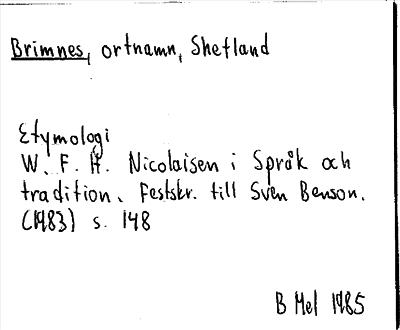 Brimnes, ortnamn, Shetland
Etymologi
W. F. H. Nicolaisen i Språk och
tradition. Festskr. till Sven Benson.
(1983) s. 148
B Mel 1985